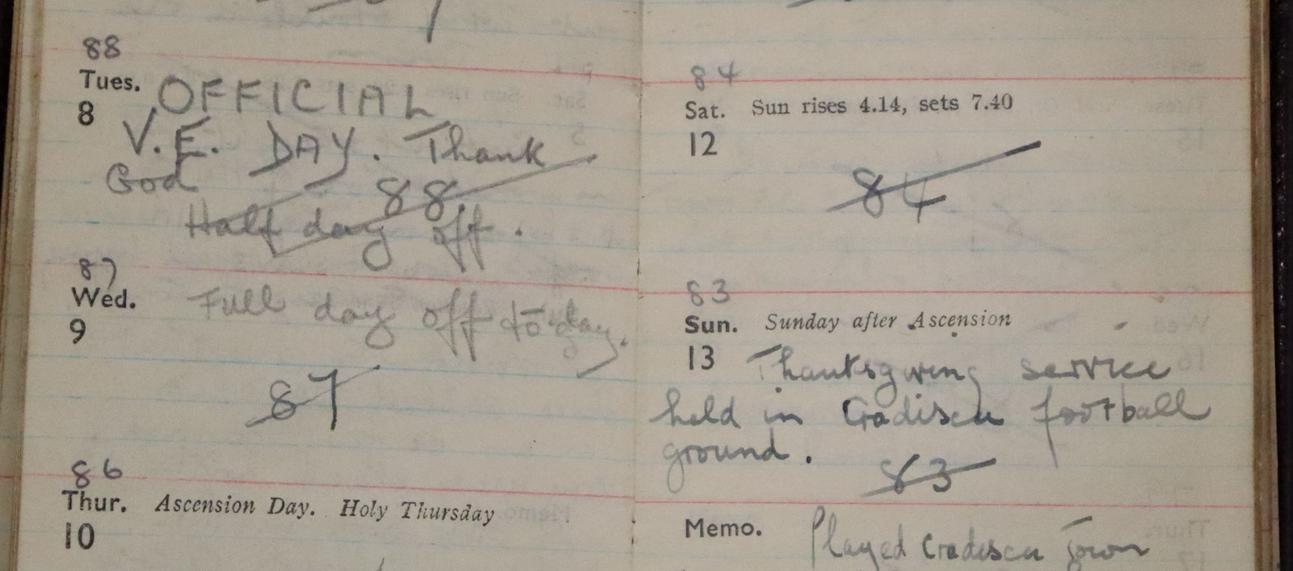 88
Tues. OFFICIAL
8 V.E. DAY. Thank
God 88
Half day off.
87
Wed. Full day off to-day.
9
87
86
Thur. Ascension Day. Holy Thursday
10
84
Sat. Sun rises 4.14, sets 7.40
12
84
83
Sun. Sunday after Ascension
13 Thanksgiving service
held in Gradisca football
ground.
83
Memo. Played Gradisca Town